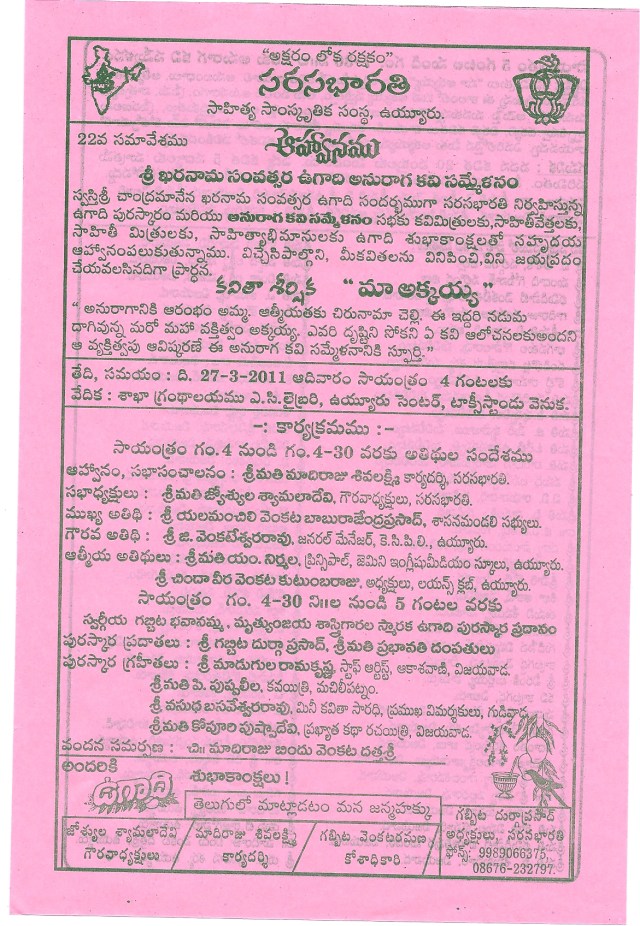 “అక్షరం లోక రక్షకం”
సరసభారతి
సాహిత్య సాంస్కృతిక సంస్థ, ఉయ్యూరు.
22వ సమావేశము
ఆహ్వానము
శ్రీ ఖరనామ సంవత్సర ఉగాది అనురాగ కవి సమ్మేళనం
స్వస్తిశ్రీ చాంద్రమానేన ఖరనామ సంవత్సర ఉగాది సందర్భముగా సరసభారతి నిర్వహిస్తున్న
ఉగాది పురస్కారం మరియు అనురాగ కవి సమ్మేళనం సభకు కవిమిత్రులకు, సాహితీవేత్తలకు,
సాహితీ మిత్రులకు, సాహిత్యాభిమానులకు ఉగాది శుభాకాంక్షలతో సహృదయ
ఆహ్వానంపలుకుతున్నాము. విచ్చేసిపాల్గొని, మీకవితలను వినిపించి,విని జయప్రదం
చేయవలసినదిగా ప్రార్ధన.
కవితా శీర్షిక “ మా అక్కయ్య ”
“ అనురాగానికి ఆరంభం అమ్మ. ఆత్మీయతకు చిరునామా చెల్లి. ఈ ఇద్దరి నడుమ
దాగివున్న మరో మహా వక్తిత్వం అక్కయ్య. ఎవరి దృష్టిని సోకని ఏ కవి ఆలోచనలకుఅందని
ఆ వ్యక్తిత్వపు ఆవిష్కరణే ఈ అనురాగ కవి సమ్మేళనానికి స్ఫూర్తి.”
తేది, సమయం : ది. 27-3-2011 ఆదివారం సాయంత్రం 4 గంటలకు
వేదిక : శాఖా గ్రంథాలయము ఎ.సి.లైబ్రరి, ఉయ్యూరు సెంటర్, టాక్సీస్టాండు వెనుక.
-: కార్యక్రమము :-
సాయంత్రం గం.4 నుండి గం.4-30 వరకు అతిథుల సందేశము
ఆహ్వానం, సభాసంచాలనం : శ్రీమతి మాదిరాజు శివలక్ష్మి కార్యదర్శి, సరసభారతి.
సభాధ్యక్షులు : శ్రీమతి జ్యోశ్యుల శ్యామలాదేవి, గౌరవాధ్యక్షులు, సరసభారతి.
ముఖ్య అతిథి : శ్రీ యలమంచిలి వెంకట బాబురాజేంద్రప్రసాద్, శాసనమండలి సభ్యులు.
గౌరవ అతిథి : శ్రీ జి. వెంకటేశ్వరరావు, జనరల్ మేనేజర్, కె.సి.పి.లి., ఉయ్యూరు.
ఆత్మీయ అతిథులు : శ్రీమతి యం. నిర్మల, ప్రిన్సిపాల్, జెమిని ఇంగ్లీషుమీడియం స్కూలు, ఉయ్యూరు.
శ్రీ చిందా వీర వెంకట కుటుంబరాజు, అధ్యక్షులు, లయన్స్ క్లబ్, ఉయ్యూరు.
సాయంత్రం గం. 4-30 ని॥ల నుండి 5 గంటల వరకు
స్వర్గీయ గబ్బిట భవానమ్మ , మృత్యుంజయ శాస్త్రిగారల స్మారక ఉగాది పురస్కార ప్రదానం
పురస్కార ప్రదాతలు : శ్రీ గబ్బిట దుర్గా ప్రసాద్, శ్రీమతి ప్రభావతి దంపతులు
పురస్కార గ్రహీతలు : శ్రీ మాడుగుల రామకృష్ణ, స్టాఫ్ ఆర్టిస్ట్, ఆకాశవాణి, విజయవాడ.
శ్రీమతి పి. పుష్పలీల, కవయిత్రి, మచిలీపట్నం.
శ్రీ వసుధ బసవేశ్వరరావు, మినీ కవితా సారధి, ప్రముఖ విమర్శకులు, గుడివాడ.
శ్రీమతి కోపూరి పుష్పాదేవి, ప్రఖ్యాత కథా రచయిత్రి, విజయవాడ.
వందన సమర్పణ : చి॥ మాదిరాజు బిందు వెంకట దత్తశ్రీ
అందరికి
ఉగాది
శుభాకాంక్షలు !
తెలుగులో మాట్లాడటం మన జన్మహక్కు
జోశ్యుల శ్యామలాదేవి
గౌరవాధ్యక్షులు
మాదిరాజు శివలక్ష్మి
కార్యదర్శి
గబ్బిట వెంకటరమణ
కోశాధికారి
గబ్బిట దుర్గాప్రసాద్
అధ్యక్షులు, సరసభారతి
ఫోన్స్: 9989066375,
08676-232797.